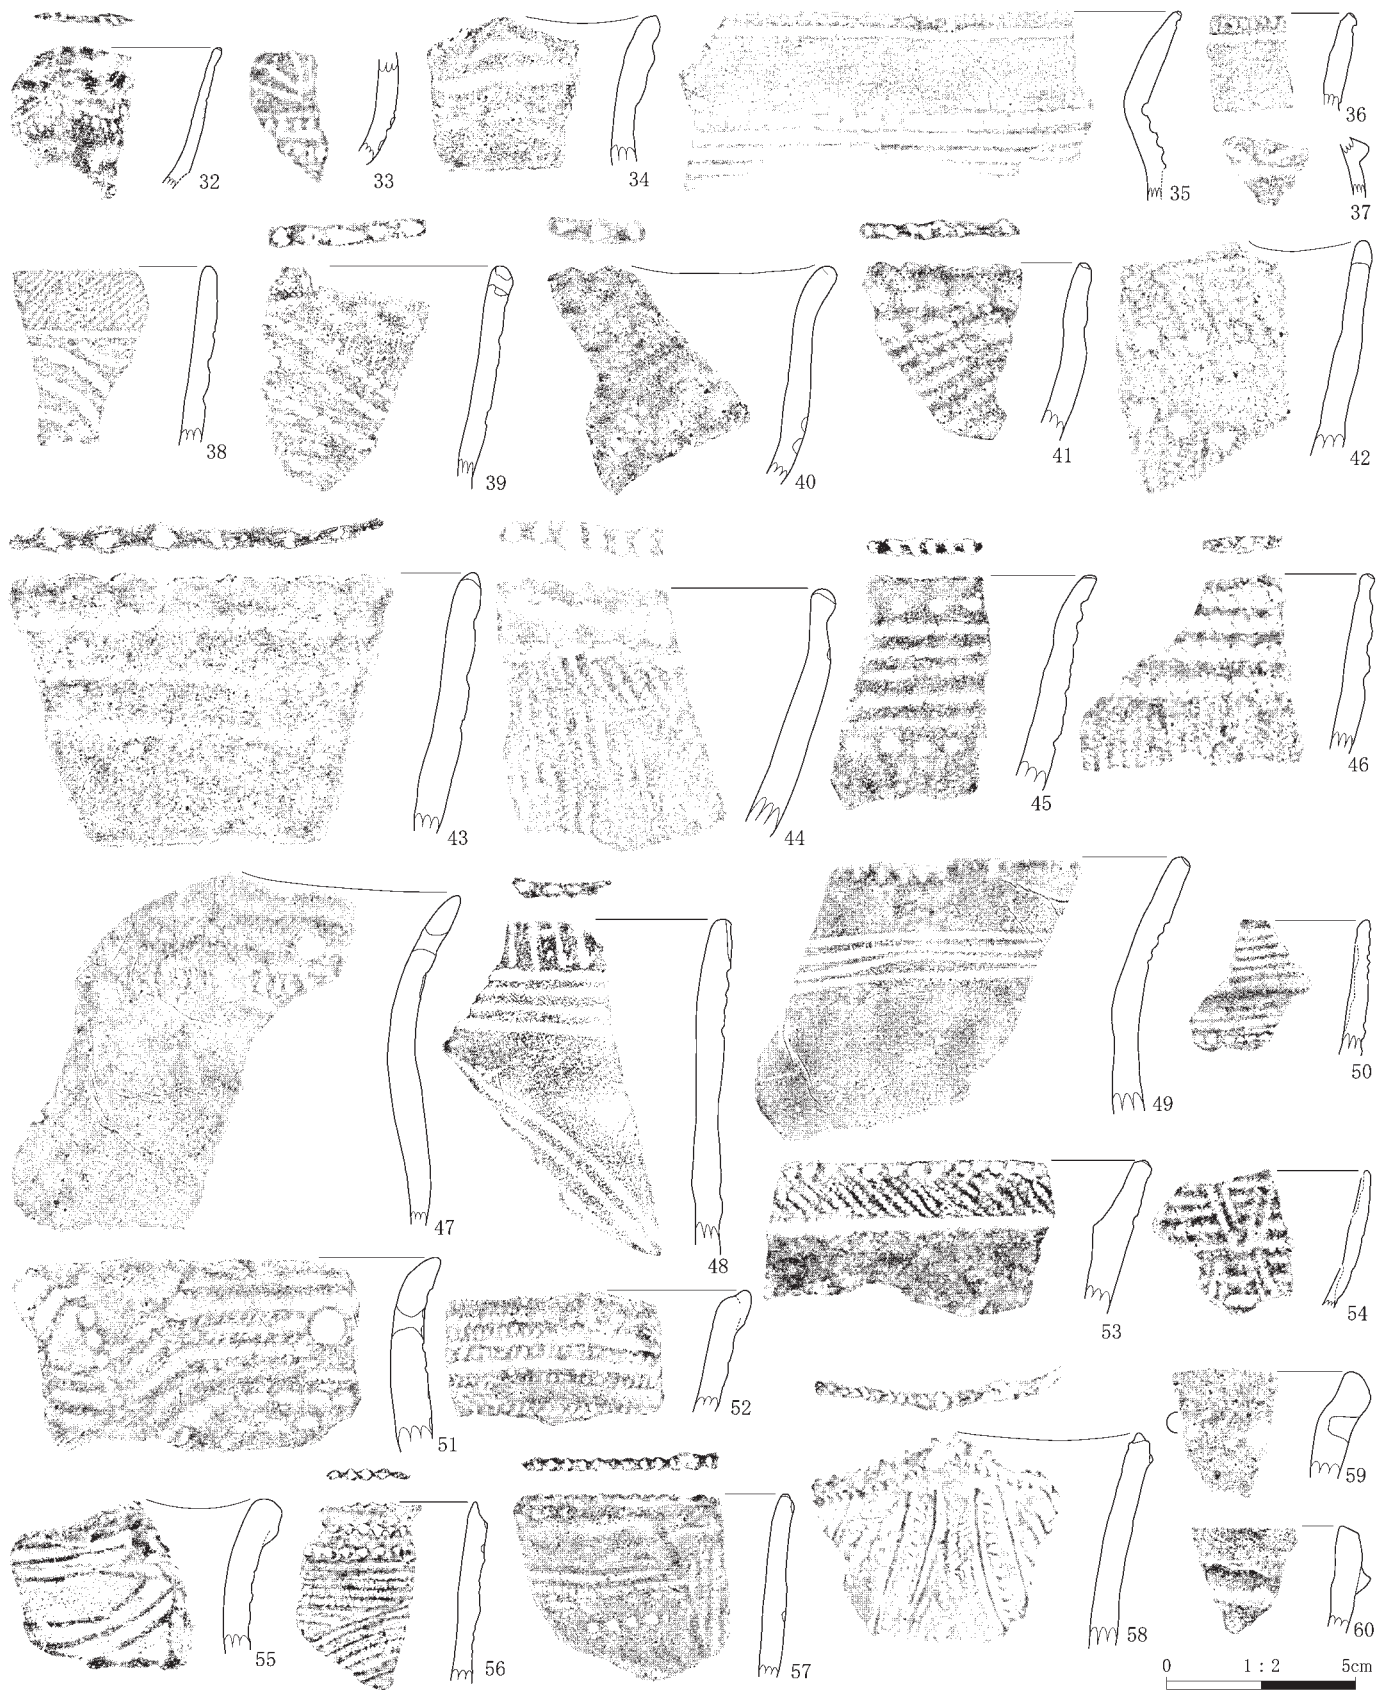 32
33
34
35
36
37
38
39
40
41
42
43
44
45
46
47
48
49
50
51
52
53
54
55
56
57
58
59
60
0 1 : 2 5cm